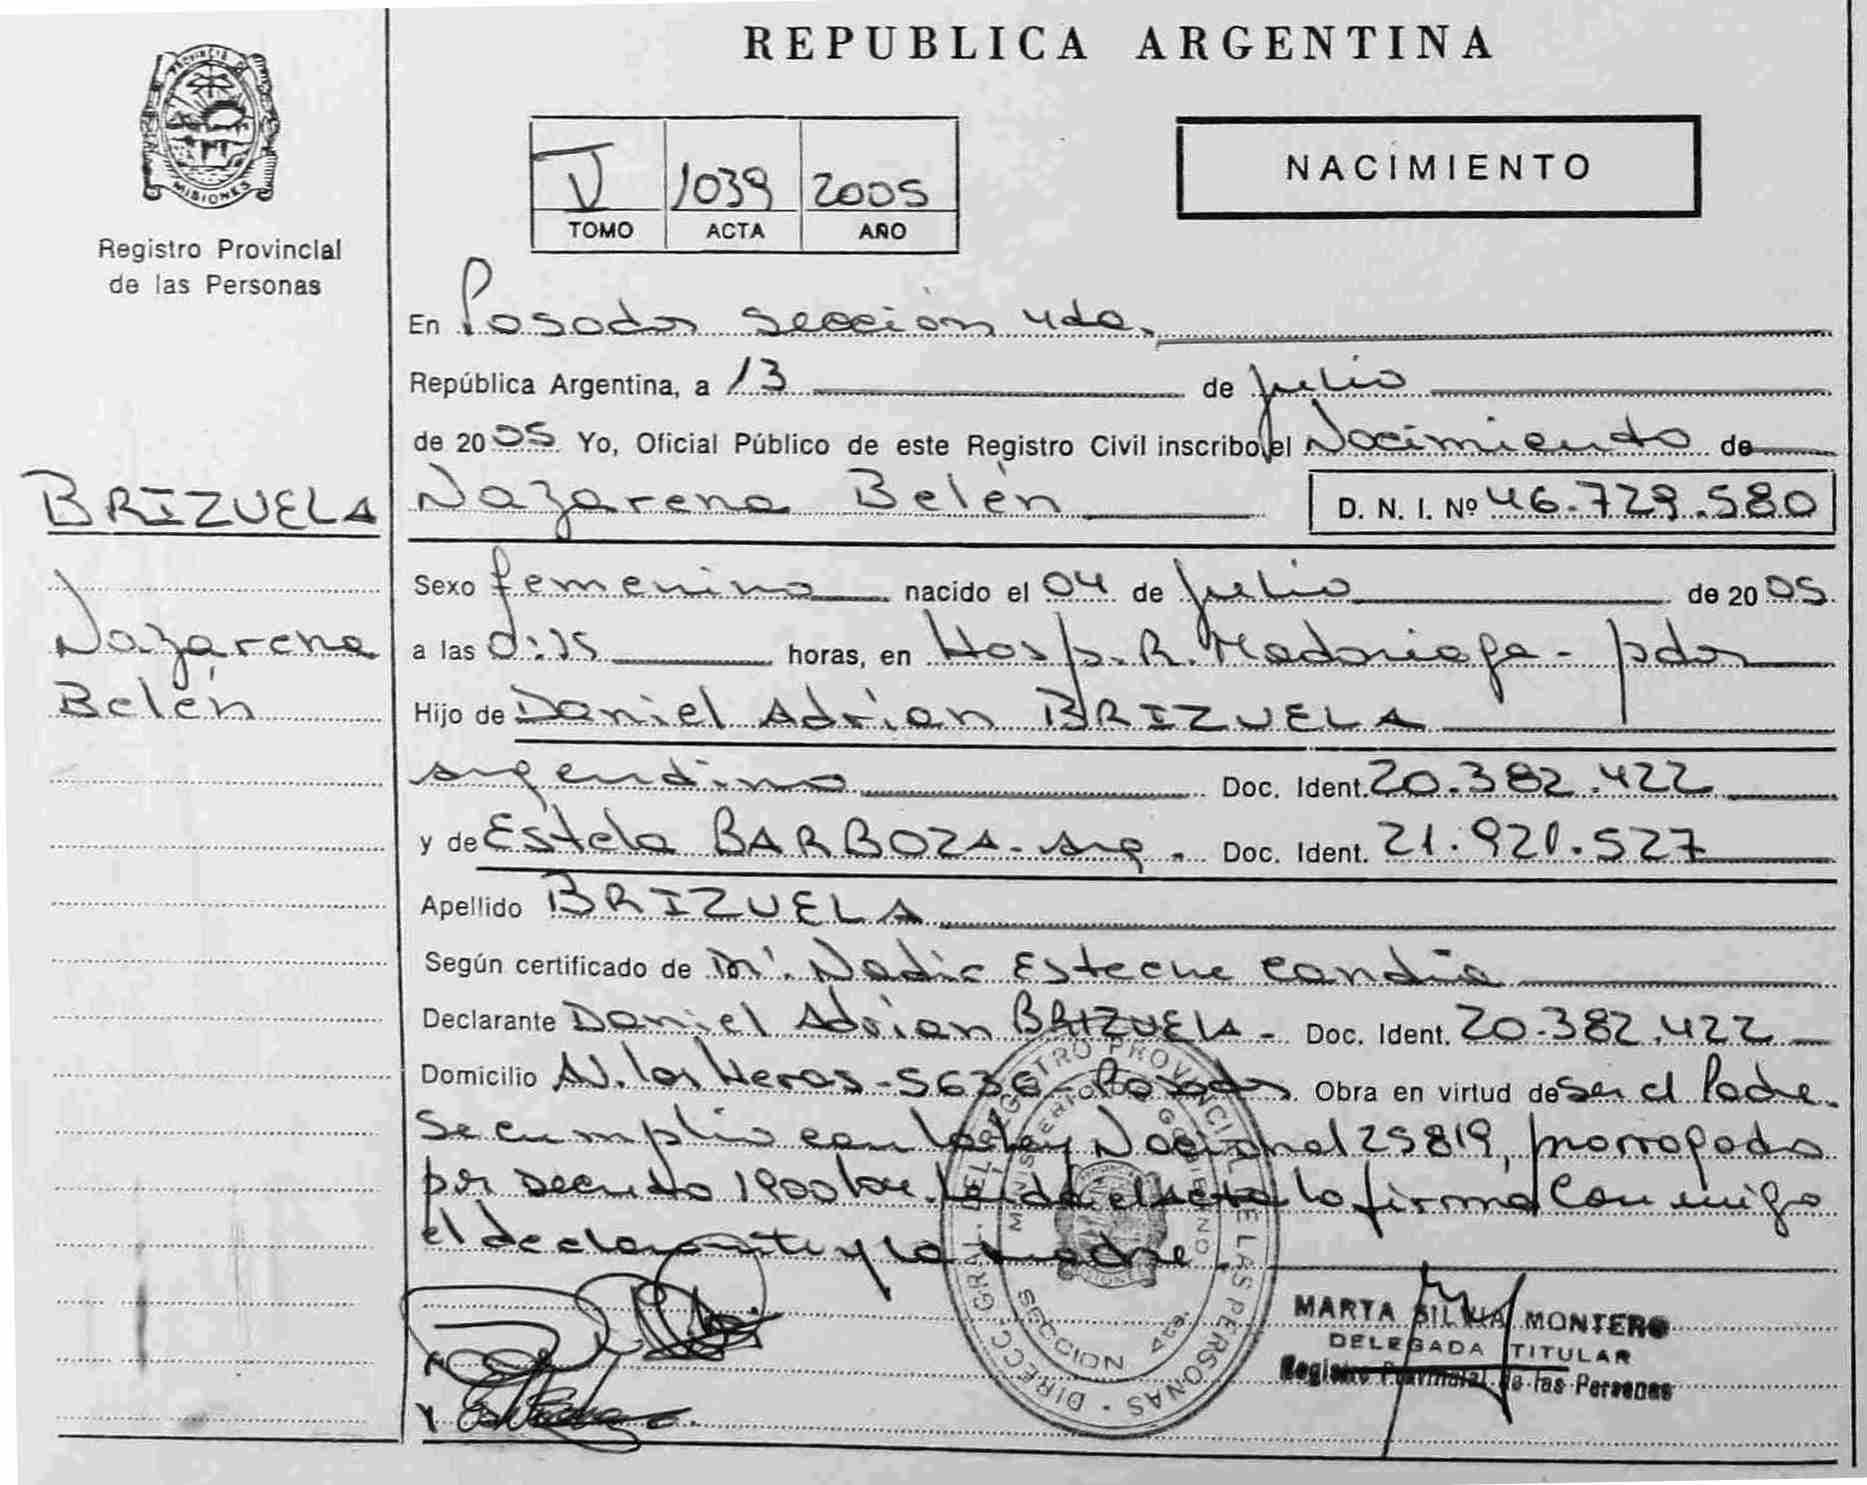 REPUBLICA ARGENTINA
PROVINCIA DE MISIONES
Registro Provincial
de las Personas
V 1039 2005
TOMO ACTA AÑO
NACIMIENTO
En Posadas Sección 4da.
República Argentina, a 13 de julio
de 2005 Yo, Oficial Público de este Registro Civil inscribo el Nacimiento de
BRIZUELA
Nazarena Belén
Nazarena Belén D. N. I. Nº 46.729.580
Sexo femenino nacido el 04 de julio de 2005
a las 0: horas, en Hosp. R. Madariaga - pdas
Hijo de Daniel Adrian BRIZUELA
argentino Doc. Ident. 20.382.422
y de Estela BARBOZA - arg - Doc. Ident. 21.921.527
Apellido BRIZUELA
Según certificado de Nadia Esteche Candia
Declarante Daniel Adrian BRIZUELA - Doc. Ident. 20.382.422
Domicilio Av. las Heras - 5636 - Posadas. Obra en virtud de ser el Padre.
Se cumplio con la ley Nacional 25819, prorrogada
por decreto 1900/04. Leida el acta la firma conmigo
el declarante y la madre.
DIRECC. GRAL. DEL REGISTRO PROVINCIAL DE LAS PERSONAS
MINISTERIO DE GOBIERNO
SECCION 4ta.
MARTA SILVIA MONTERO
DELEGADA TITULAR
Registro Provincial de las Personas